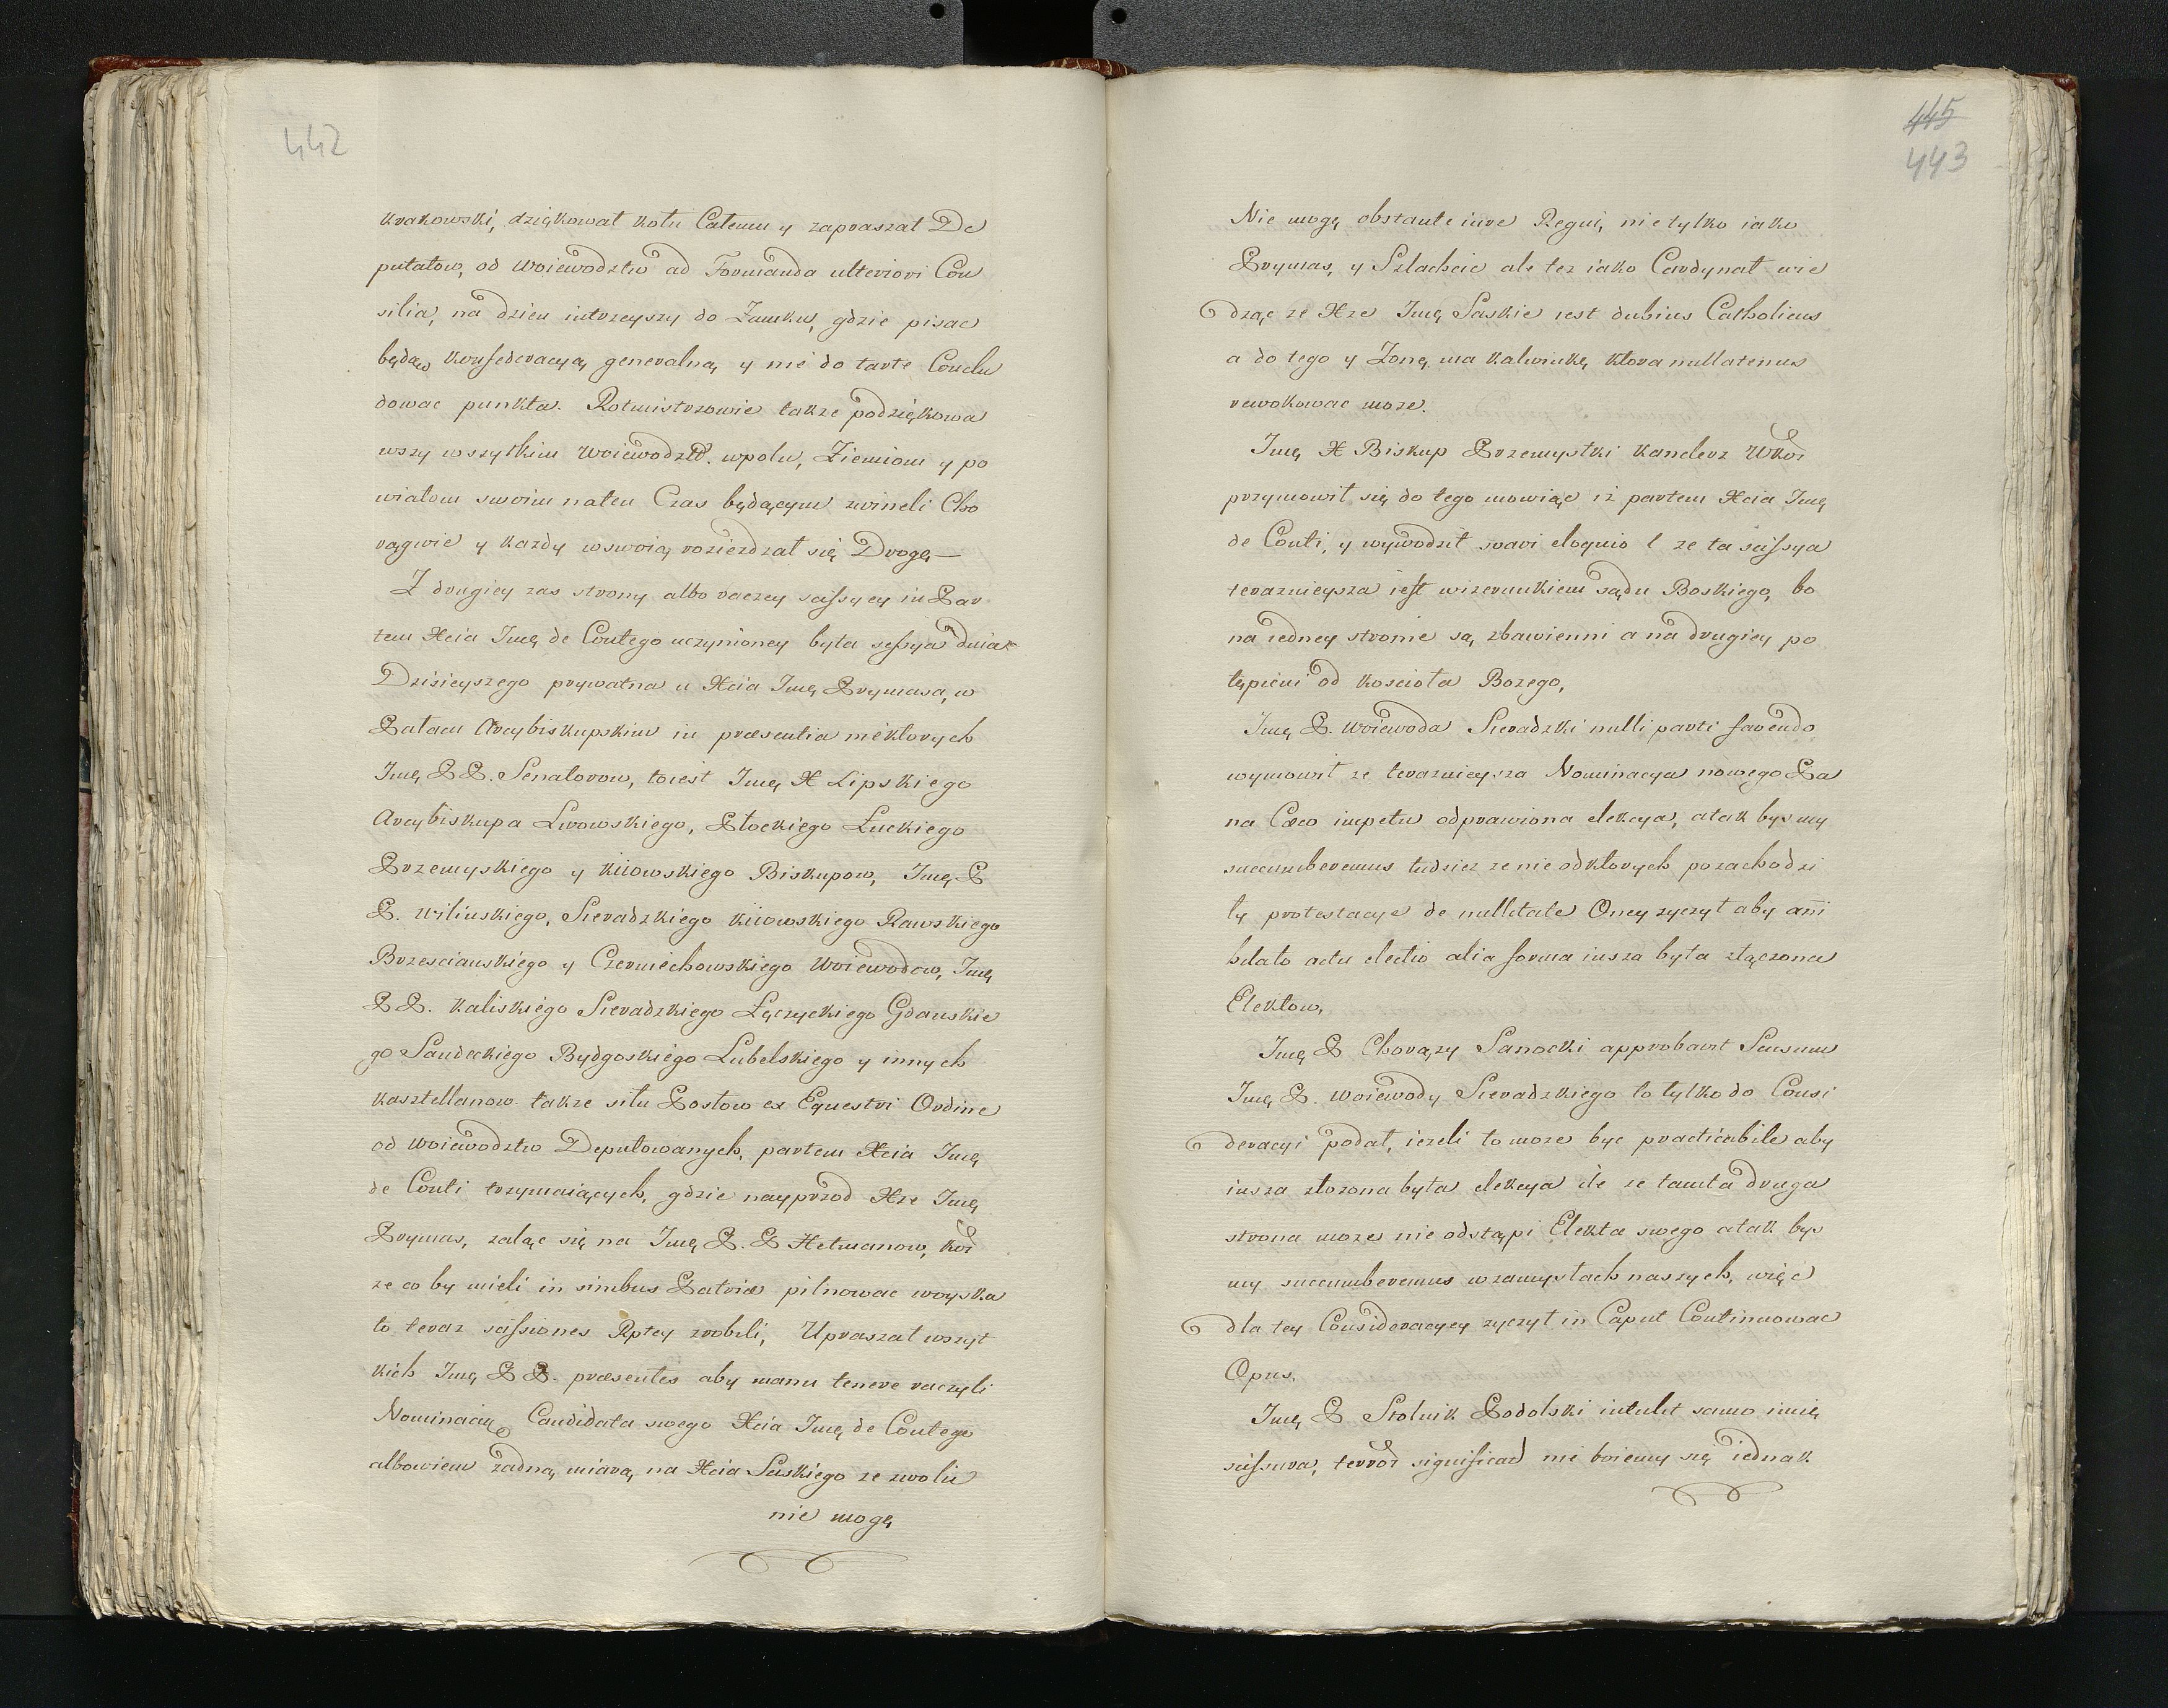 442
krakowski, dziękował kołu Całemu y zapraszał De
putatow, od Woiewodztw ad Formanda ulteriori Con
silia, na dzien iutrzeyszy do Zamku, gdzie pisac
będą konfederacyą generalną y nie do tarte Conclu
dowac punkta. Rotmistrzowie takze podziękowa
wszy wszytkim Woiewodztw. wpolu, Ziemiom y po
wiatom swoim naten Czas będącym zwineli Cho
rągwie y kazdy wswoią rozierdzal się Drogę —
Z drugiey zas strony albo raczey scissyey in Par
tem Xcia Jmę de Contego uczynioney była sessya dnia
Dzisieyszego prywatna u Xcia Jmę Prymasa, w
Pałacu Arcybiskupskim in præsentia niektorych
Jmę P P. Senatorow, toiest Jmę X Lipskiego
Arcybiskupa Lwowskiego, Płockiego Łuckiego
Przemyskiego y kiiowskiego Biskupow, Jmę P
P. wilinskiego, Sieradzkiego kiiowskiego Rawskiego
Brzescianskiego y Czerniechowskiego Woiewodow, Jmę
P P. kaliskiego Sieradzkiego Łęczyckiego Gdanskie
go Sandeckiego Bydgoskiego Lubelskiego y innych
kasztellanow. takze siłu Posłow ex Equestri Ordine
od Woiewodztw Deputowanych, partem Xcia Jmę
de Conti trzymaiących, gdzie nayprzod Xze Jmę
Prymas, zaląc się na Jmę P. P Hetmanow, kor
ze co by mieli in sinibus Patriæ pilnowac woyska
to teraz scissiones Rptey zrobili, Upraszał wszyt
kich Jmę P P. præsentes aby manu tenere raczyli
Nominacią Candidata swego Xcia Jmę de Contego
albowiem zadną miarą, na Xcia Saskiego ze zwolic
nie mogę
445
443
Nie mogę obstante iure Regni, nietylko iako
Prymas, y Szlachcic ale tez iako Cardynał wie
dząc ze Xze Jmę Saskie iest dubius Catholicus
a do tego y Zonę ma kalwinkę ktora nullatenus
rewokowac moze.
Jmę X Biskup Przemystki kanclerz Wkor
przymowił się do tego mowiąc iz partem Xcia Jmę
de Conti, y wywodził suavi eloquio l ze ta scissya
terazmieysza iest wizerunkiem sądu Boskiego, bo
na iedney stronie są zbawienni a na drugiey po
tępieni od kosciota Bozego,
Jmę P. Woiewoda Sieradzki nulli parti favendo
wymowił ze teraznieysza Nominacya nowego Pa
na Cæco impetu odprawiona elekcya, atak bysmy
succumberemus tudziez ze nie odktorych pozachodzi
ły protestacye de nullitate Oney zyczył aby anni
hilato actu electio alia forma insza była złączona
Elektow,
Jmę P Chorązy Sanocki approbavit Sensum
Jmę P. Woiewody Sieradzkiego to tylko do Consi
deracyi podał, iezeli to moze byc practicabile aby
insza złozona była elekcya ile ze tamta druga
strona moze nie odstąpi Elekta swego atak bys
my succumberemus wzamysłach naszych, więc
dla tey Consideracyey zyczył in Caput Continuowac
Opus.
Jmę P Stolnik Podolski intulit samo imię
scissura, terror significat nie boiemy się iednak